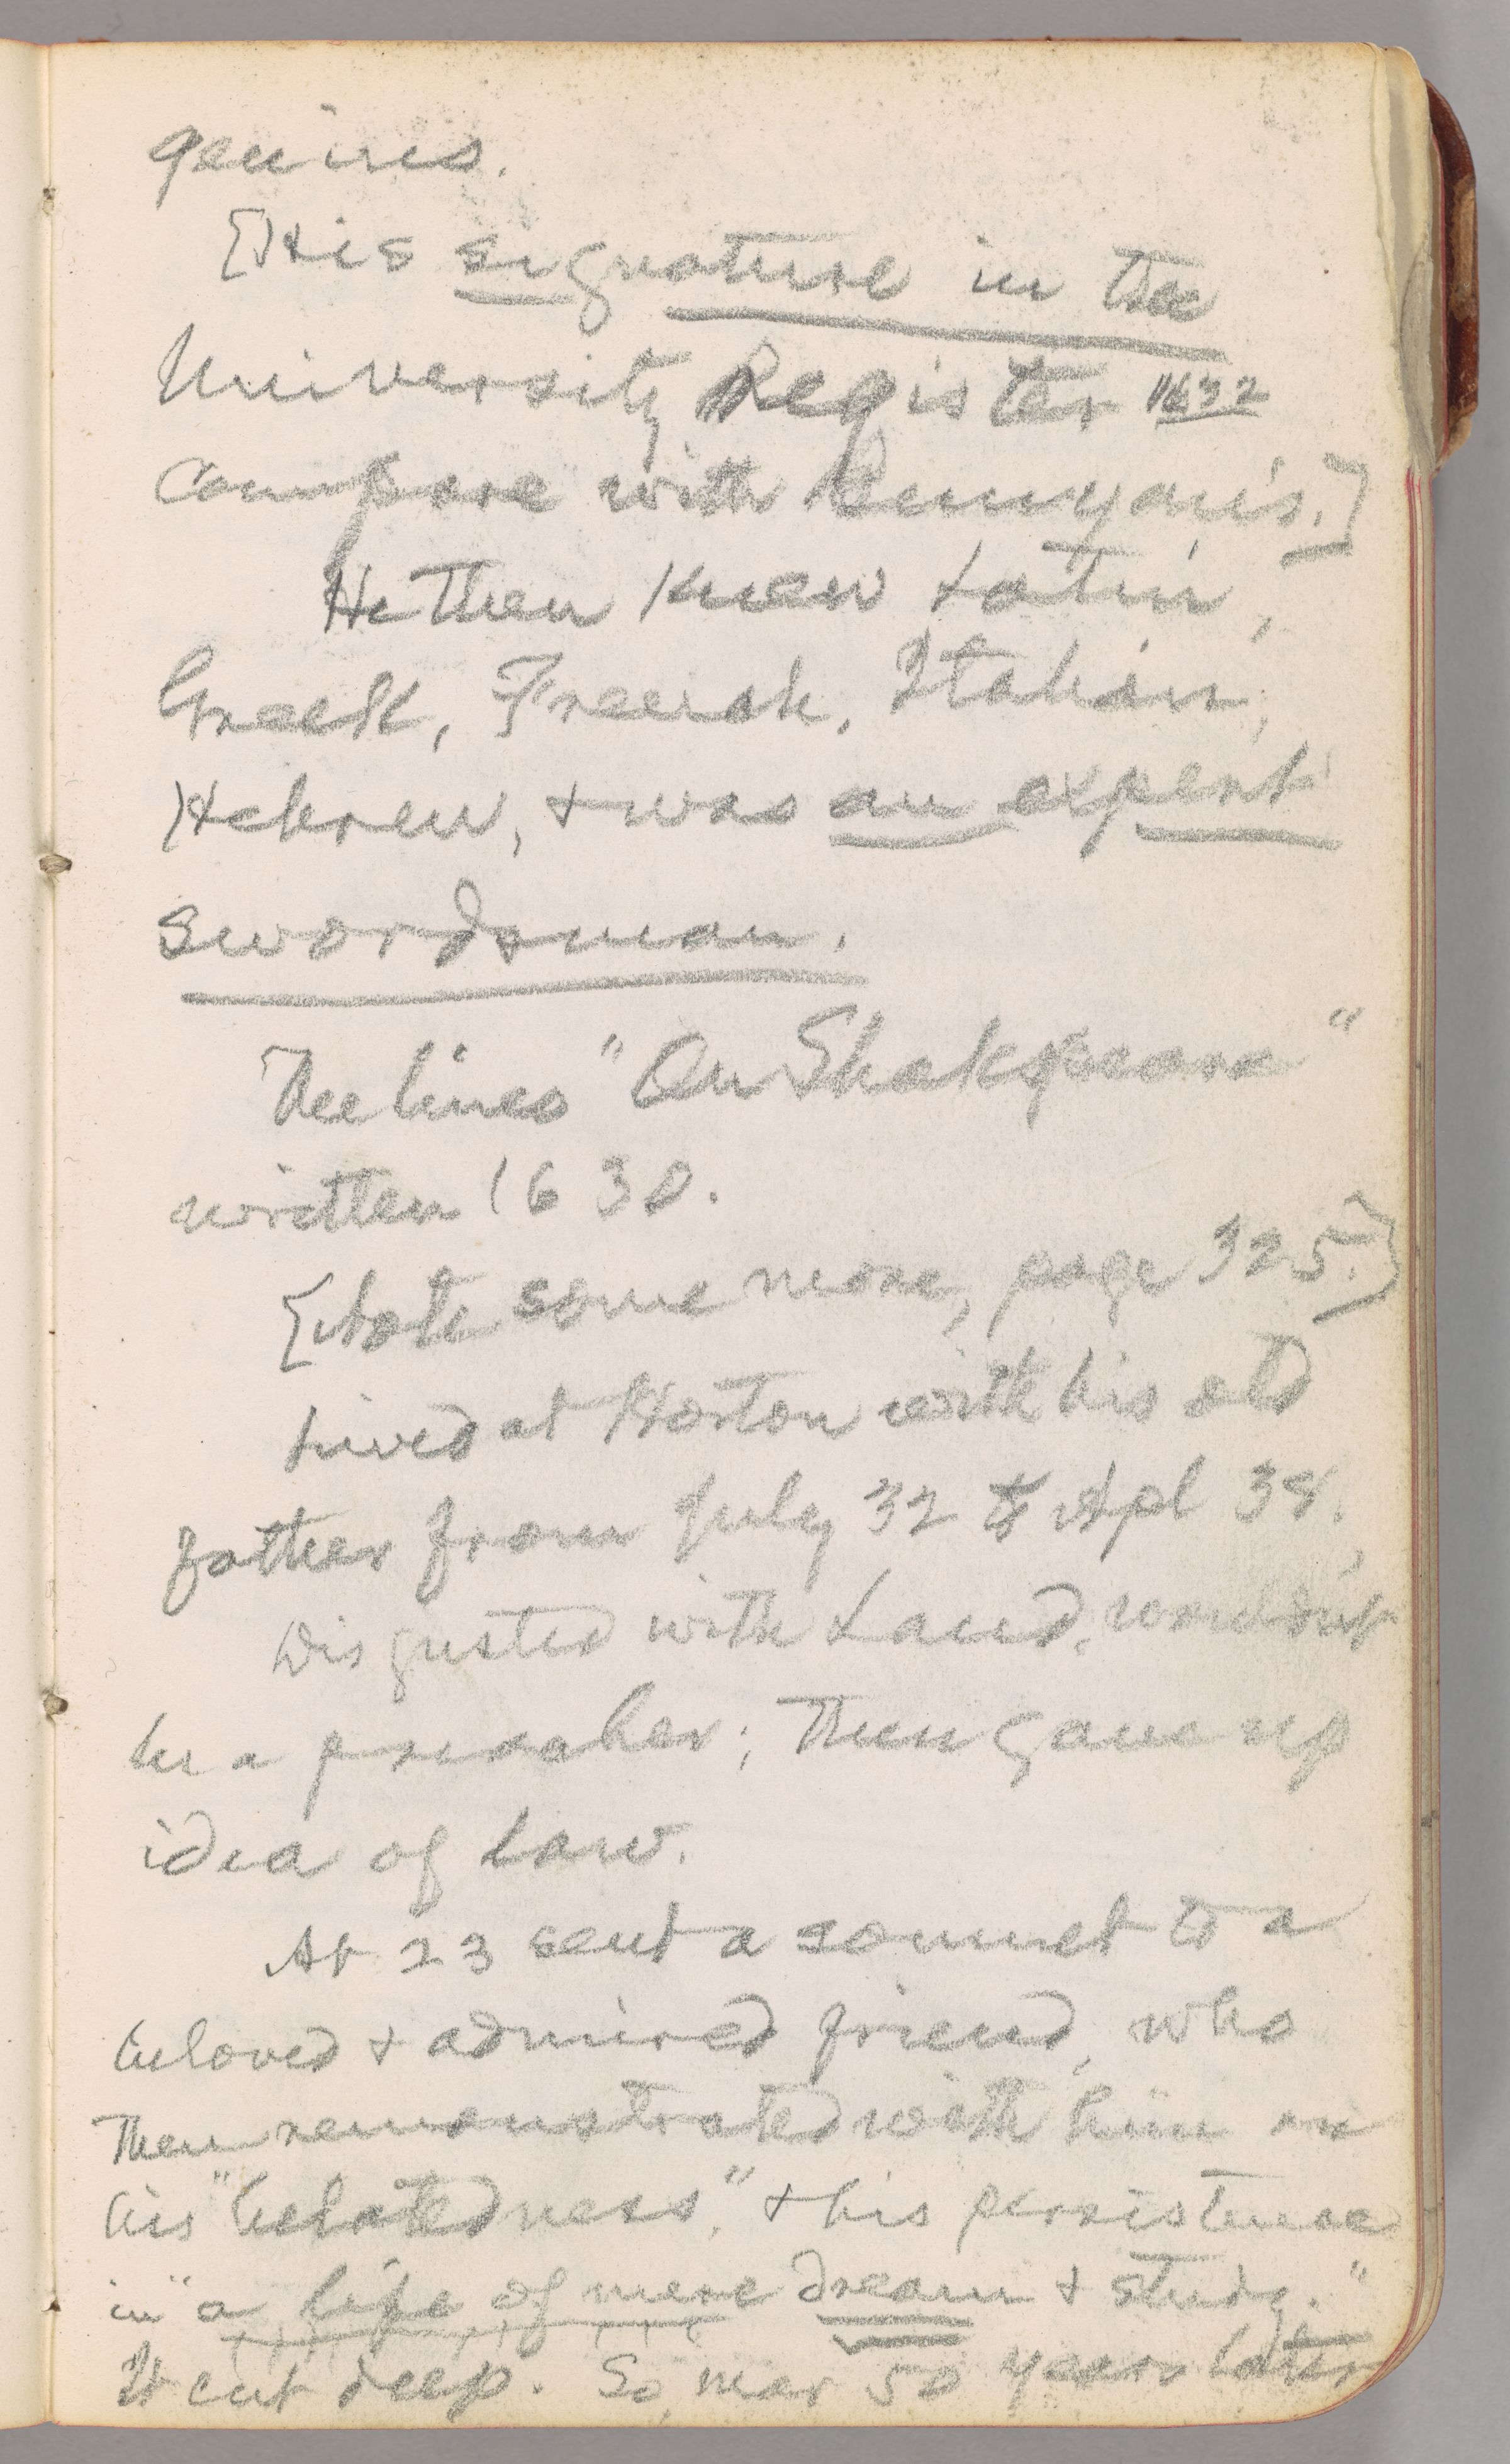 genius.
[His signature in the
University Register 1632
Compare with Bunyan's.]
He then knew Latin,
Greek, French, Italian,
Hebrew, + was an expert
swordsman.
The lines "On Shakspeare"
written 1630.
[Note some more, page 325.]
Lived at Horton with his old
father from July 32 to Apl 38.
Disgusted with Laud, wouldn't
be a preacher; then gave up
idea of law.
At 23 sent a sonnet to a
beloved + admired friend, who
then remonstrated with him on
his "belatedness," + his persistence
in "a life of mere dream + study."
It cut deep. So, near 50 years later